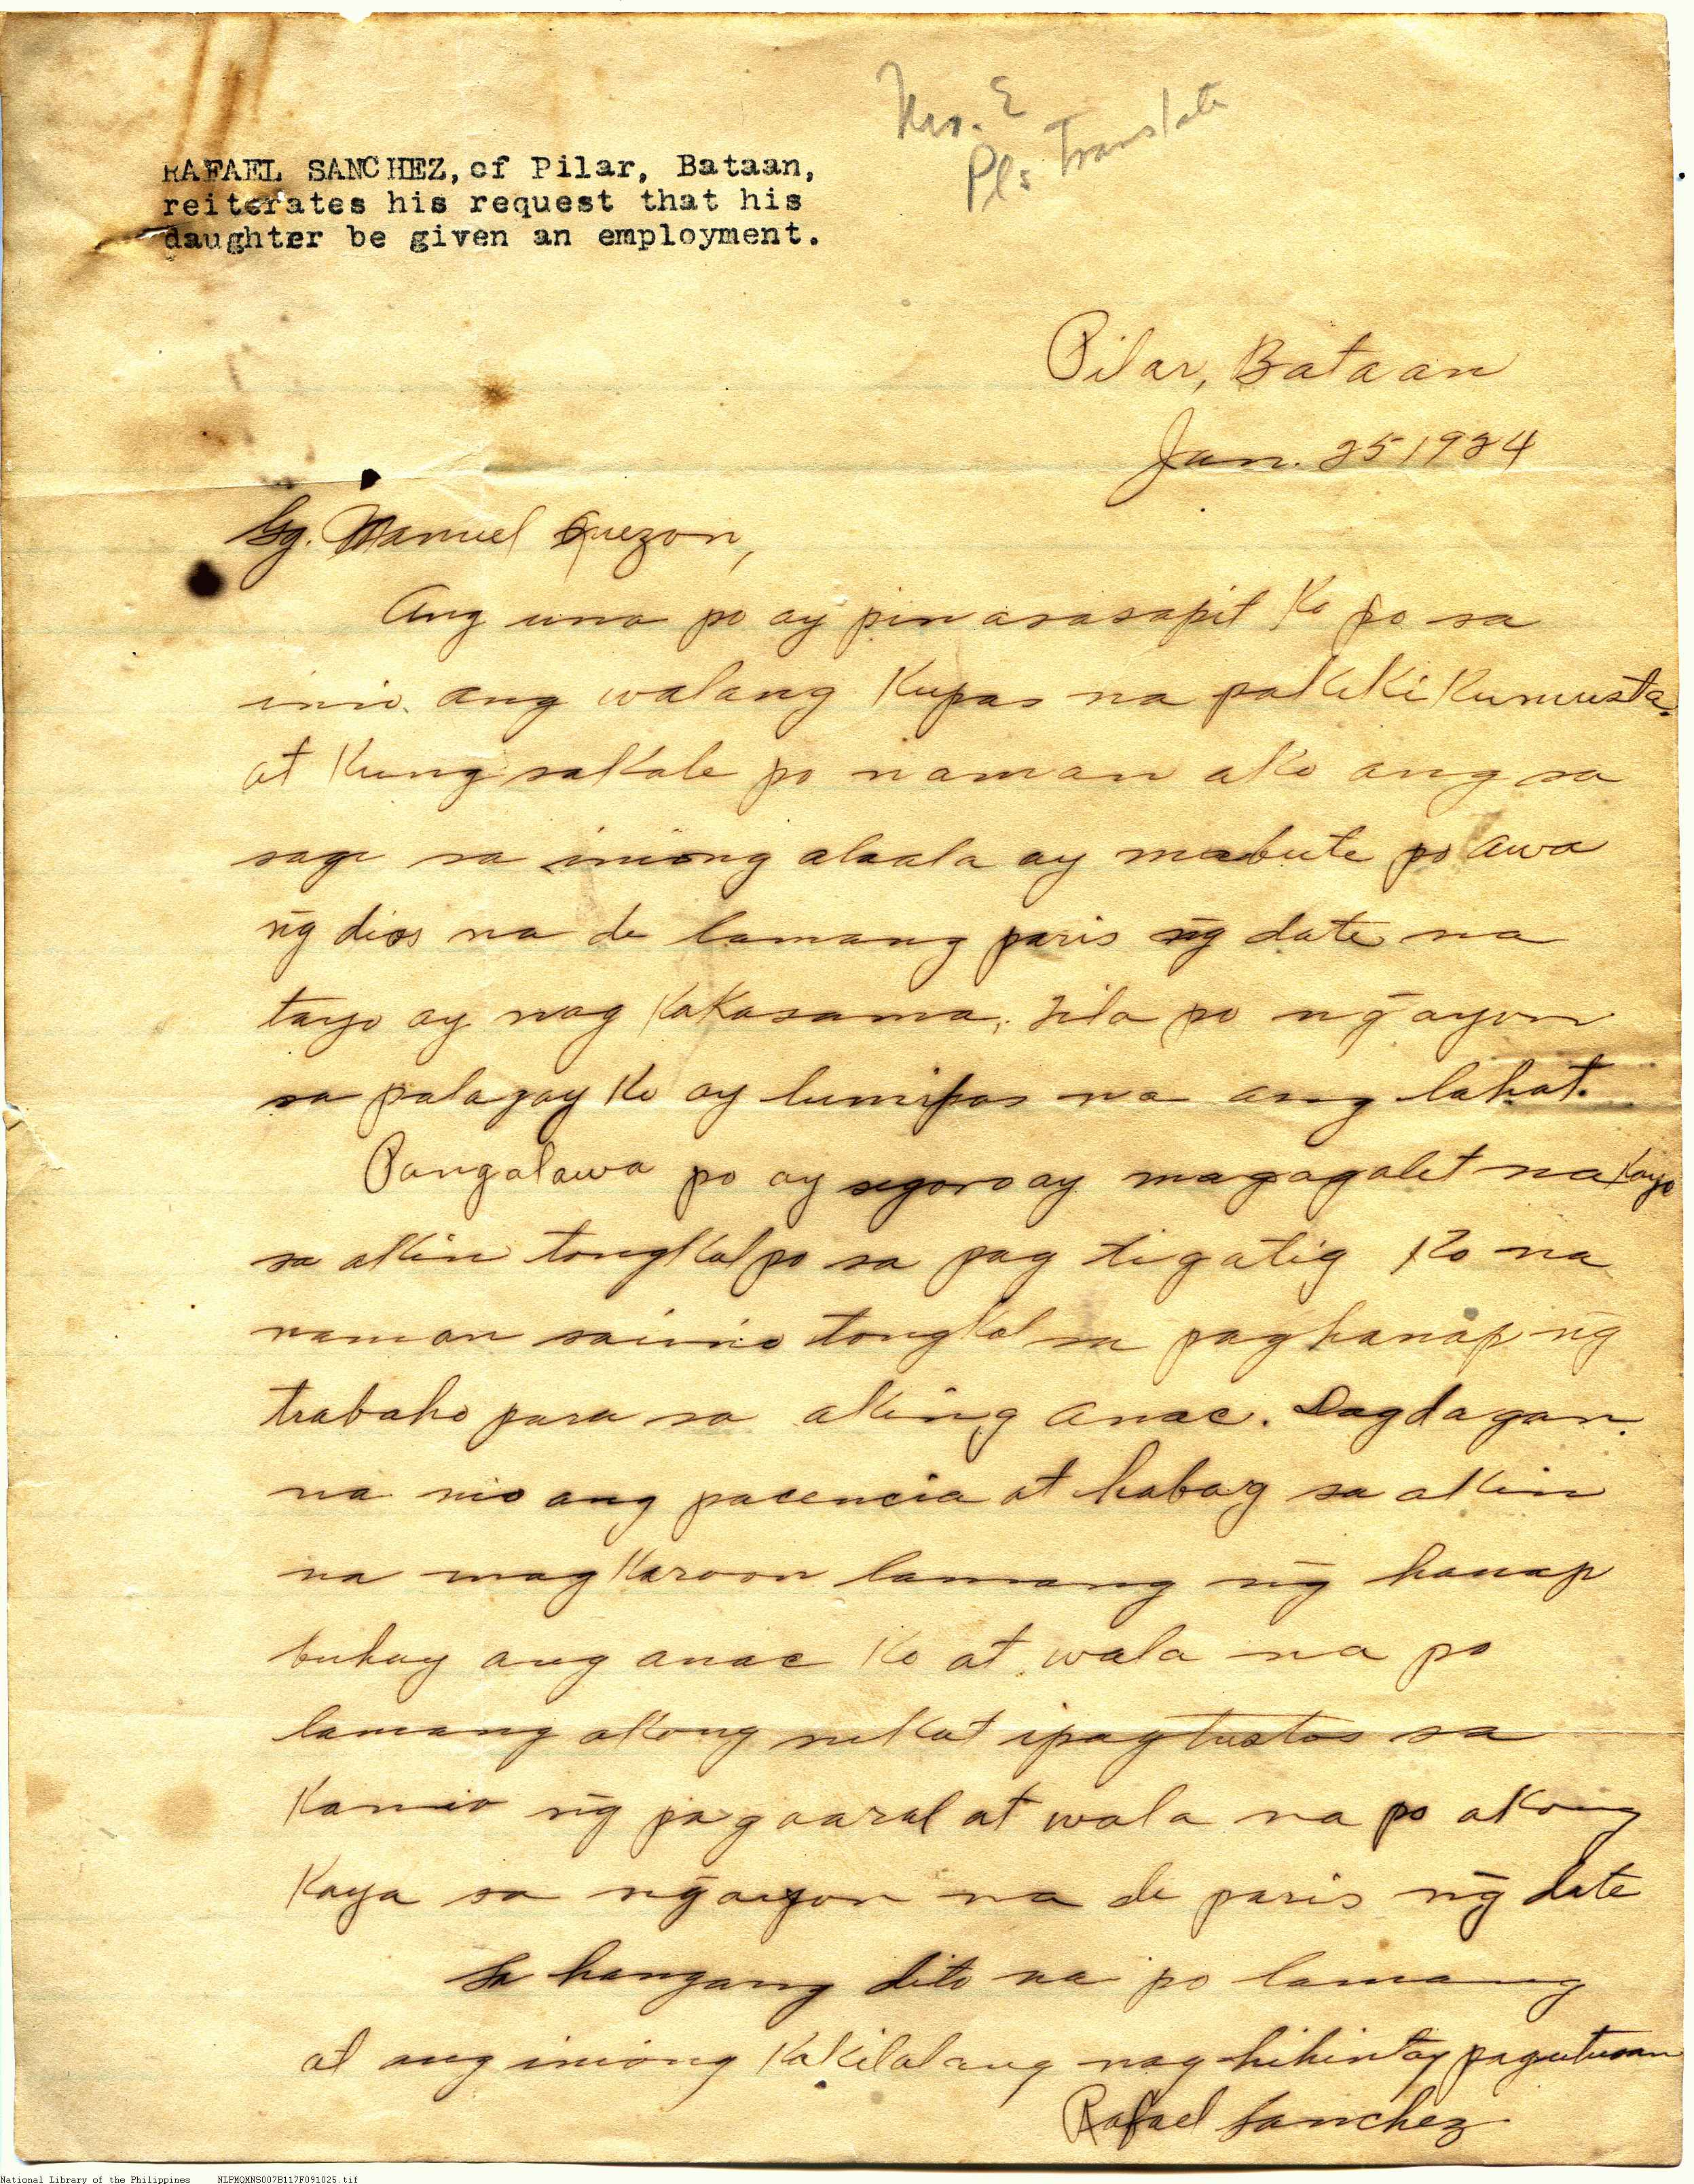 Mrs. E
Pls Translate
RAFAEL SANCHEZ, of Pilar, Bataan,
reiterates his request that his
daughter be given an employment.
Pilar, Bataan
Jan. 25 1924
Gg. Manuel Quezon,
Ang una po ay pinarasapit Ko po sa
inio ang walang Kupas na pakikikumusta.
at Kung sakale po naman ako ang sa
sagi sa iniong alaala ay mabute po awa
ng dios na de lamang paris ng date na
tayo ay nag Kakasama, sila po ngayon
sa palagay Ko ay lumipas na ang lahat.
Pangalawa po ay segoro ay magagalet na Kayo
sa akin tongkol po sa pag tigatig Ko na
naman sainio tongkol sa paghanap ng
trabaho para sa aking anac. Dagdagan
na nio ang pacencia at habag sa akin
na mag Karoon lamang ng hanap
buhay ang anac Ko at wala na po
lamang akong sukat ipagtustos sa
Kanio ng pagaaral at wala na po akong
Kaya sa ngayon na de paris ng date
Sa hangang dito na po lamang
at ang iniong Kakilalang naghihintay pagutusan
Rafael Sanchez
National Library of the Philippines NLPMQMNS007B117F091025.tif